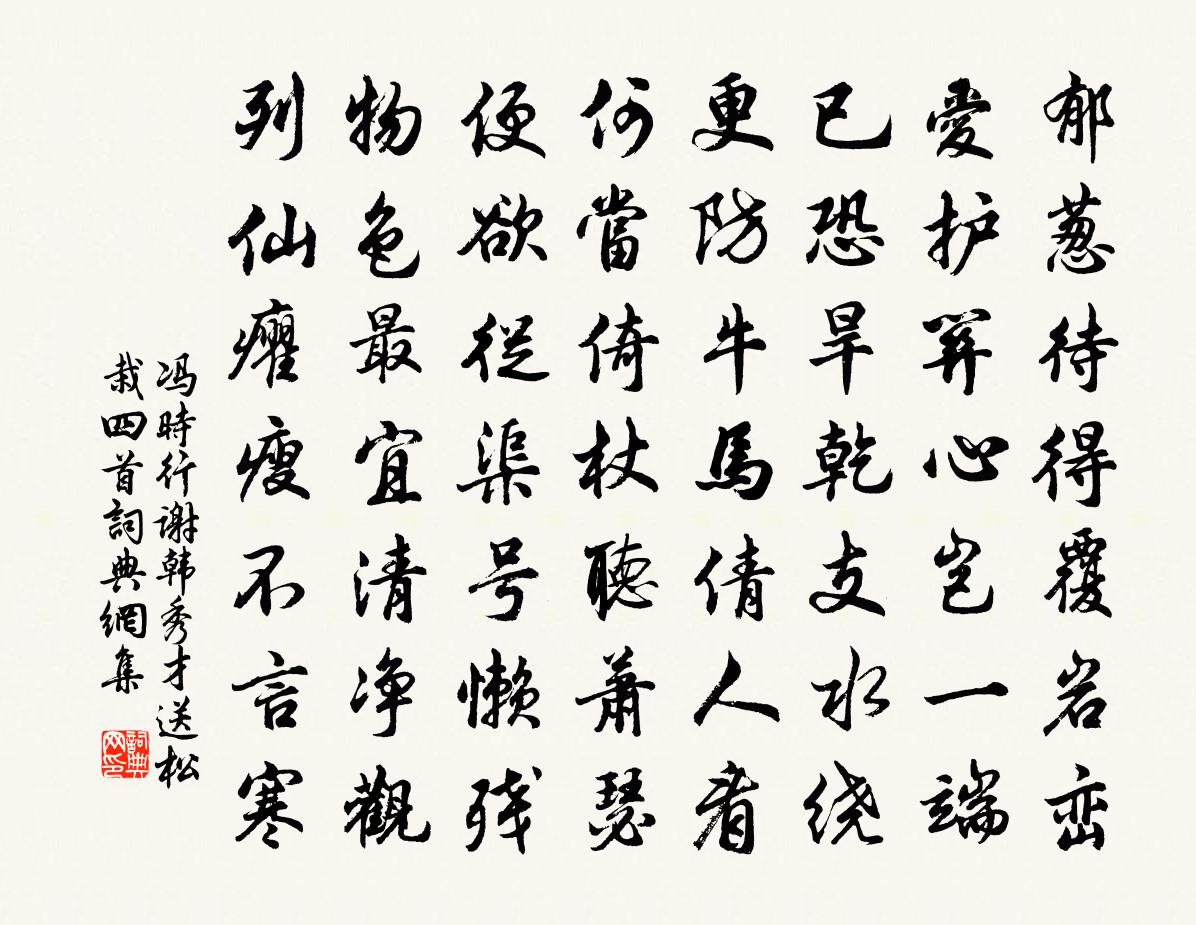 郁葱待得覆岩峦
愛护筭心岂一端
已恐旱乾支水绕
更防牛馬倩人看
何當倚杖聽萧瑟
便欲從渠号懒残
物色最宜清净觀
列仙癯瘦不言寒
冯時行谢韩秀才送松
栽四首詞典網集
詞典网印